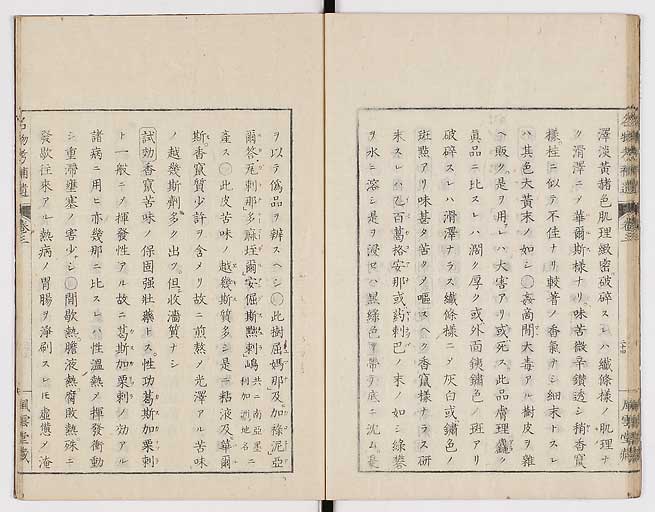 澤淡黄赭色肌理緻密破碎スレハ纖條様ノ肌理ナ
ク滑澤ニソ華爾斯様ナリ味苦微辛鑚透シ稍香竄
様桂ニ似テ不佳ナリ較著ノ香氣ナシ細末トスレ
ハ其色大黄末ノ如シ○姦商間大毒アル樹皮ヲ雜
ヘ販ク是ヲ用レハ大害アリ或死ス此品膚理
眞品ニ比スレハ濶ク厚ク或外面銕鏽色ノ斑アリ
破碎スレハ滑澤ナラス纖條様ニソ灰白或鏽色ノ
斑㸃アリ味甚タ苦クノ嘔スヘク香竄様ナラス研
末スレハ百葛格安那或葯刺巴ノ末ノ如シ綠礬
ヲ水ニ溶シ是ヲ浸セハ黒綠色ヲ帶テ底ニ沈ム
ヲ以テ僞品ヲ辨スヘシ○此樹屈媽那及加祿泥亞
爾荅瓦刺那多蘇垤爾安傴斯㸃刺嶋共ニ南亞墨利加洲地名ニ
産ス○此皮苦味ノ越幾斯質多シ是ニ粘液及華爾
斯香竄質少許ヲ含メリ故ニ煎熬ノ光澤アル苦味
ノ越幾斯劑多ク出ツ但收濇質ナシ
試効 香竄苦味ノ保固强壮藥トス性功葛斯加栗刺
ト一般ニソ揮發性アル故ニ葛斯加栗刺ノ効アル
諸病ニ用ヒ亦幾那ニ比スレハ性温熱ノ揮發衝動
シ重滞壅塞ノ害少シ○間歇熱膽液熱腐敗熱殊ニ
發歇往来アル熱病ノ胃腸ヲ淨刷スレモ虚憊ノ淹
名物考補遺 卷三 風雲堂藏